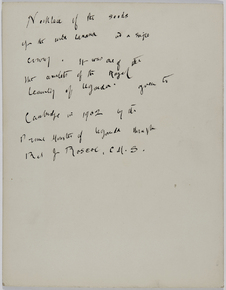 Necklace of the seeds
of the wild banana and a single
cowry. It was one of the
the amulets of the Royal
family of Uganda. given to
Cambridge in 1902 by the
Prime Minister of Uganda through
Rev J. Roscoe, C.M.S.